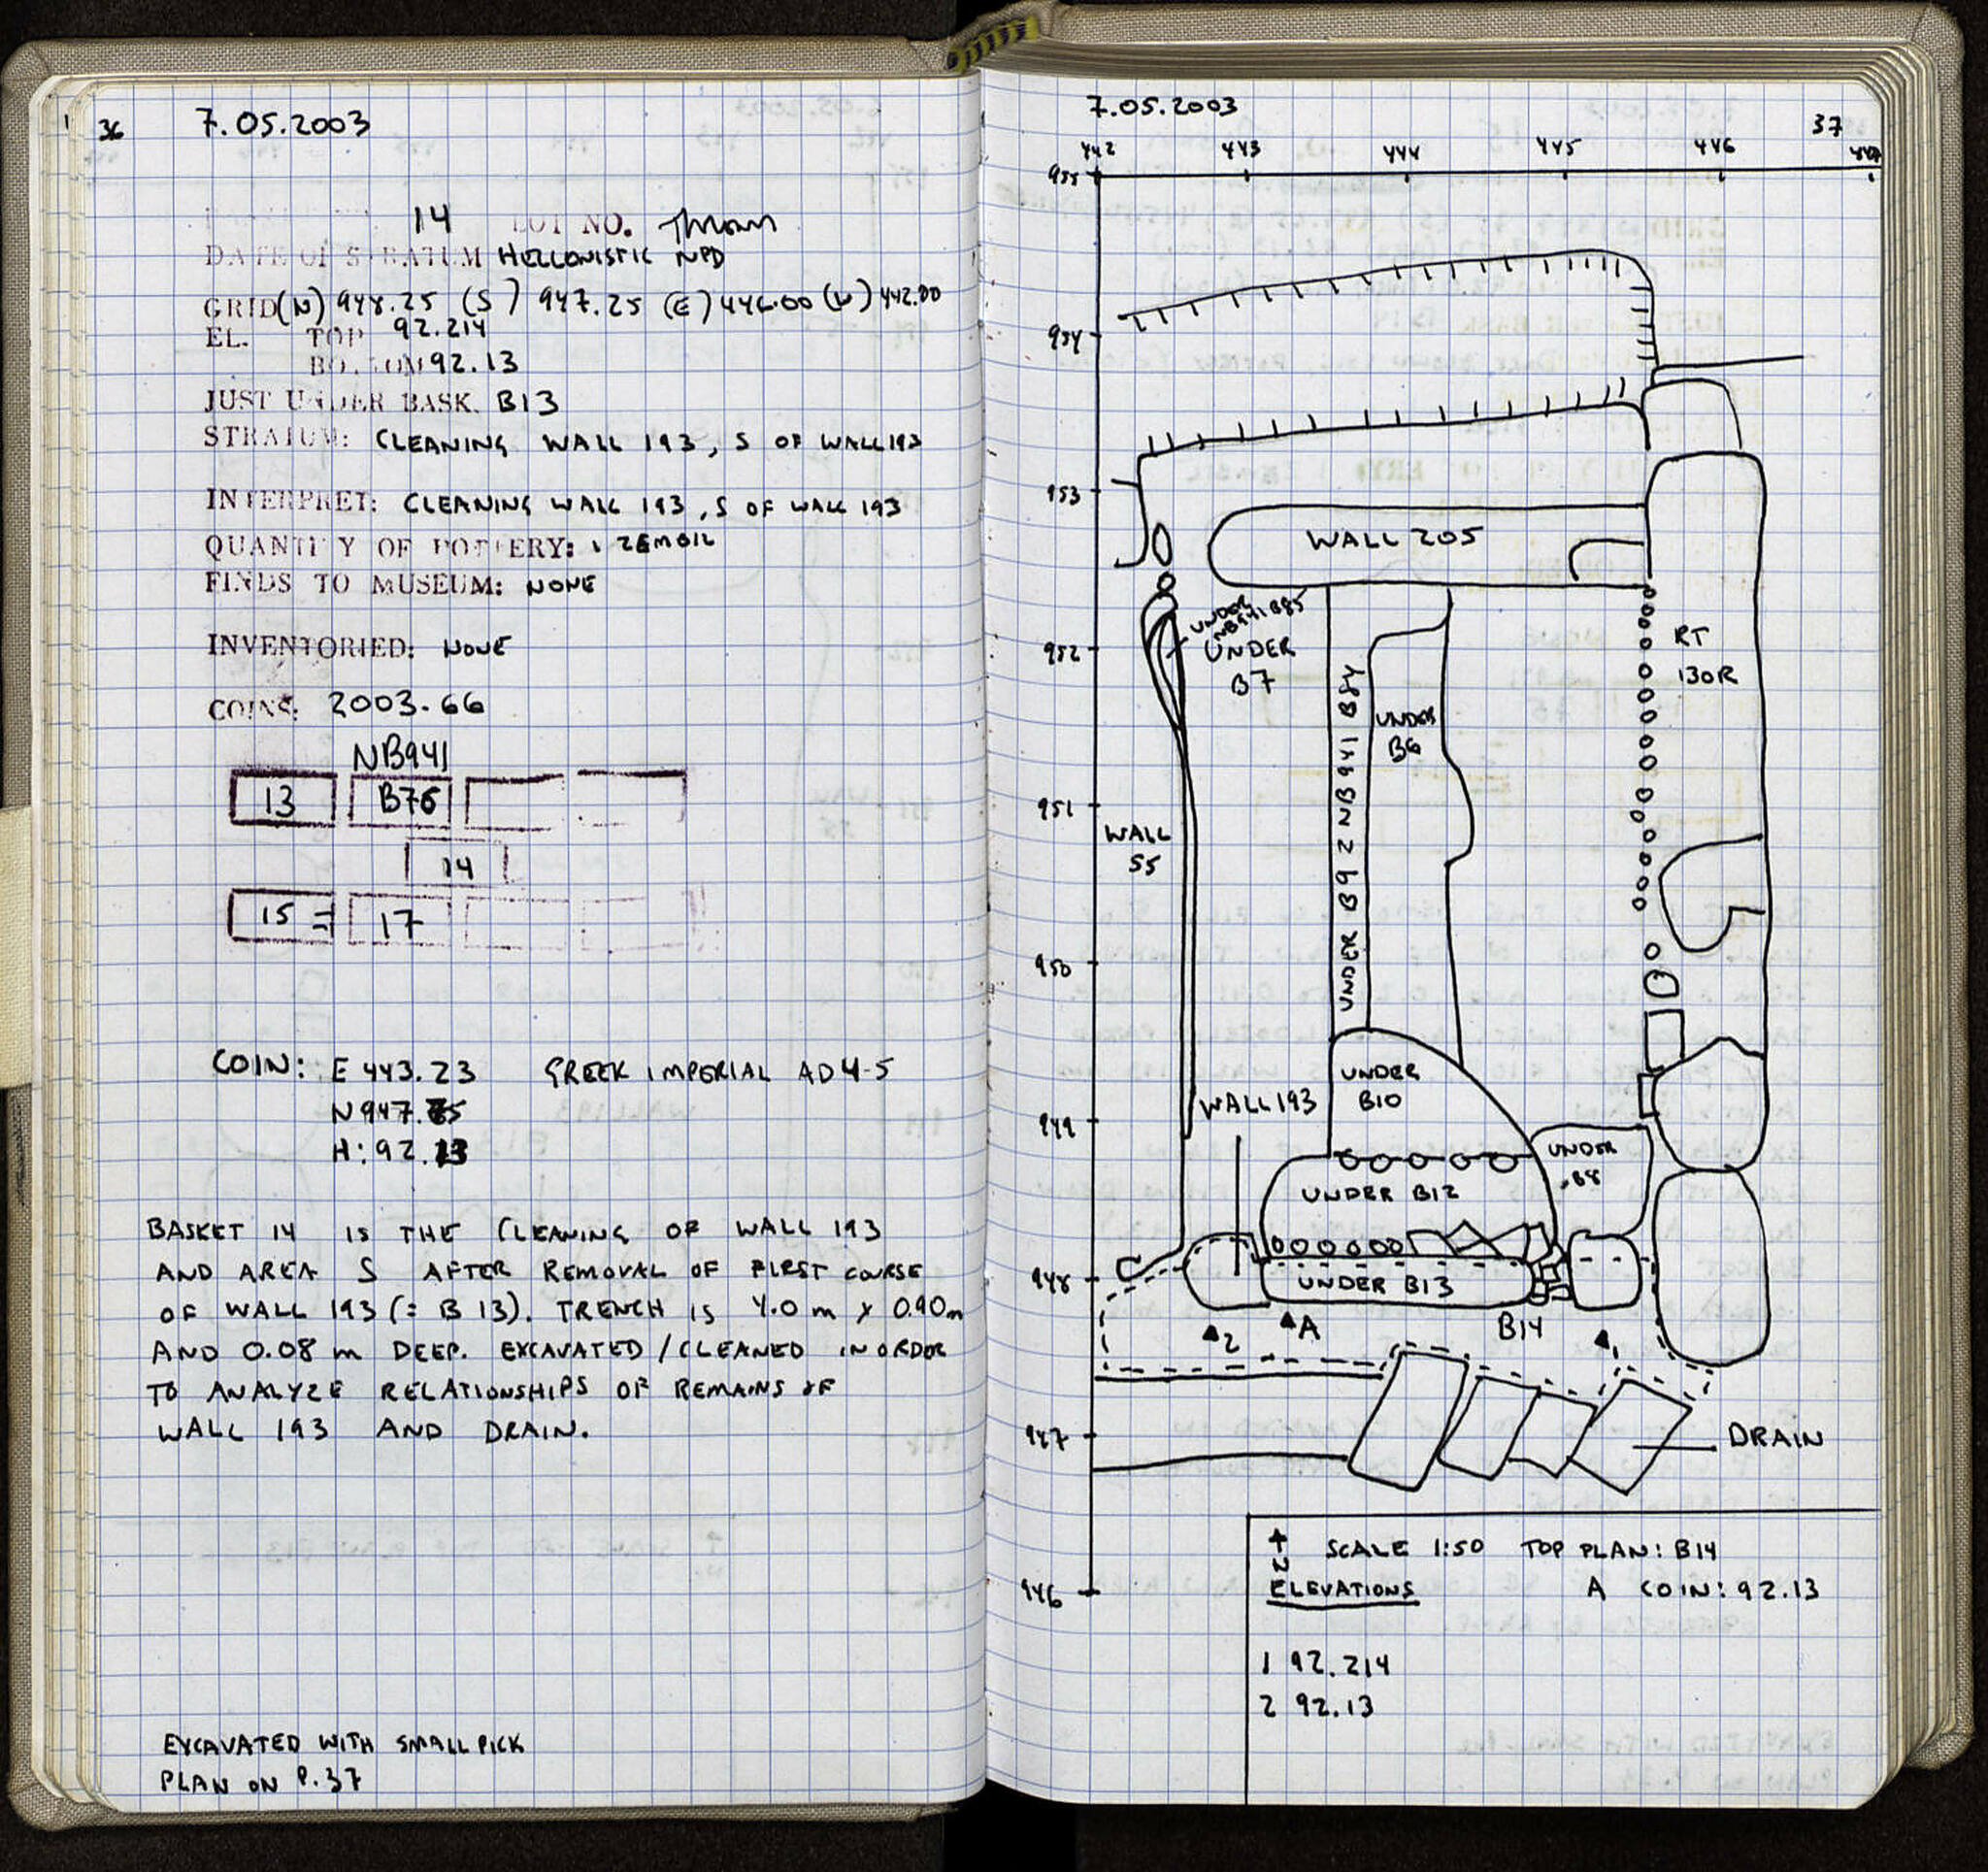 36
7.05.2003
14 LOT NO. THROW
DATE OF STRATUM HELLONISTIC NPD
GRID (N) 948.25 (S) 947.25 (E) 446.00 (W) 442.00
EL. TOP 92.214
BOTTOM 92.13
JUST UNDER BASK. B13
STRATUM: CLEANING WALL 193, S OF WALL 193
INTERPRET: CLEANING WALL 193, S OF WALL 193
QUANTITY OF POTTERY: 1 ZEMBIL
FINDS TO MUSEUM: NONE
INVENTORIED: NONE
COINS: 2003.66
NB941
13 B76
14
15 = 17
COIN: E 443.23 GREEK IMPERIAL AD 4-5
N 947.75
H: 92.13
BASKET 14 IS THE CLEANING OF WALL 193
AND AREA S AFTER REMOVAL OF FIRST COURSE
OF WALL 193 (= B 13). TRENCH IS 4.0 m x 0.90m
AND 0.08 m DEEP. EXCAVATED / CLEANED IN ORDOR
TO ANALYZE RELATIONSHIPS OF REMAINS OF
WALL 193 AND DRAIN.
EXCAVATED WITH SMALL PICK
PLAN ON P.37
7.05.2003
37
442 443 444 445 446 447
955
954
953
WALL 205
UNDER
NB941 B85
952
UNDER
B7
RT
130R
UNDER
B6
UNDER B9 2 NB941 B84
951
WALL
55
950
UNDER
B10
WALL 193
949
UNDER
B8
UNDER B12
948
UNDER B13
2
A
B14
1
947
DRAIN
946
N
SCALE 1:50 TOP PLAN: B14
ELEVATIONS A COIN: 92.13
1 92.214
2 92.13